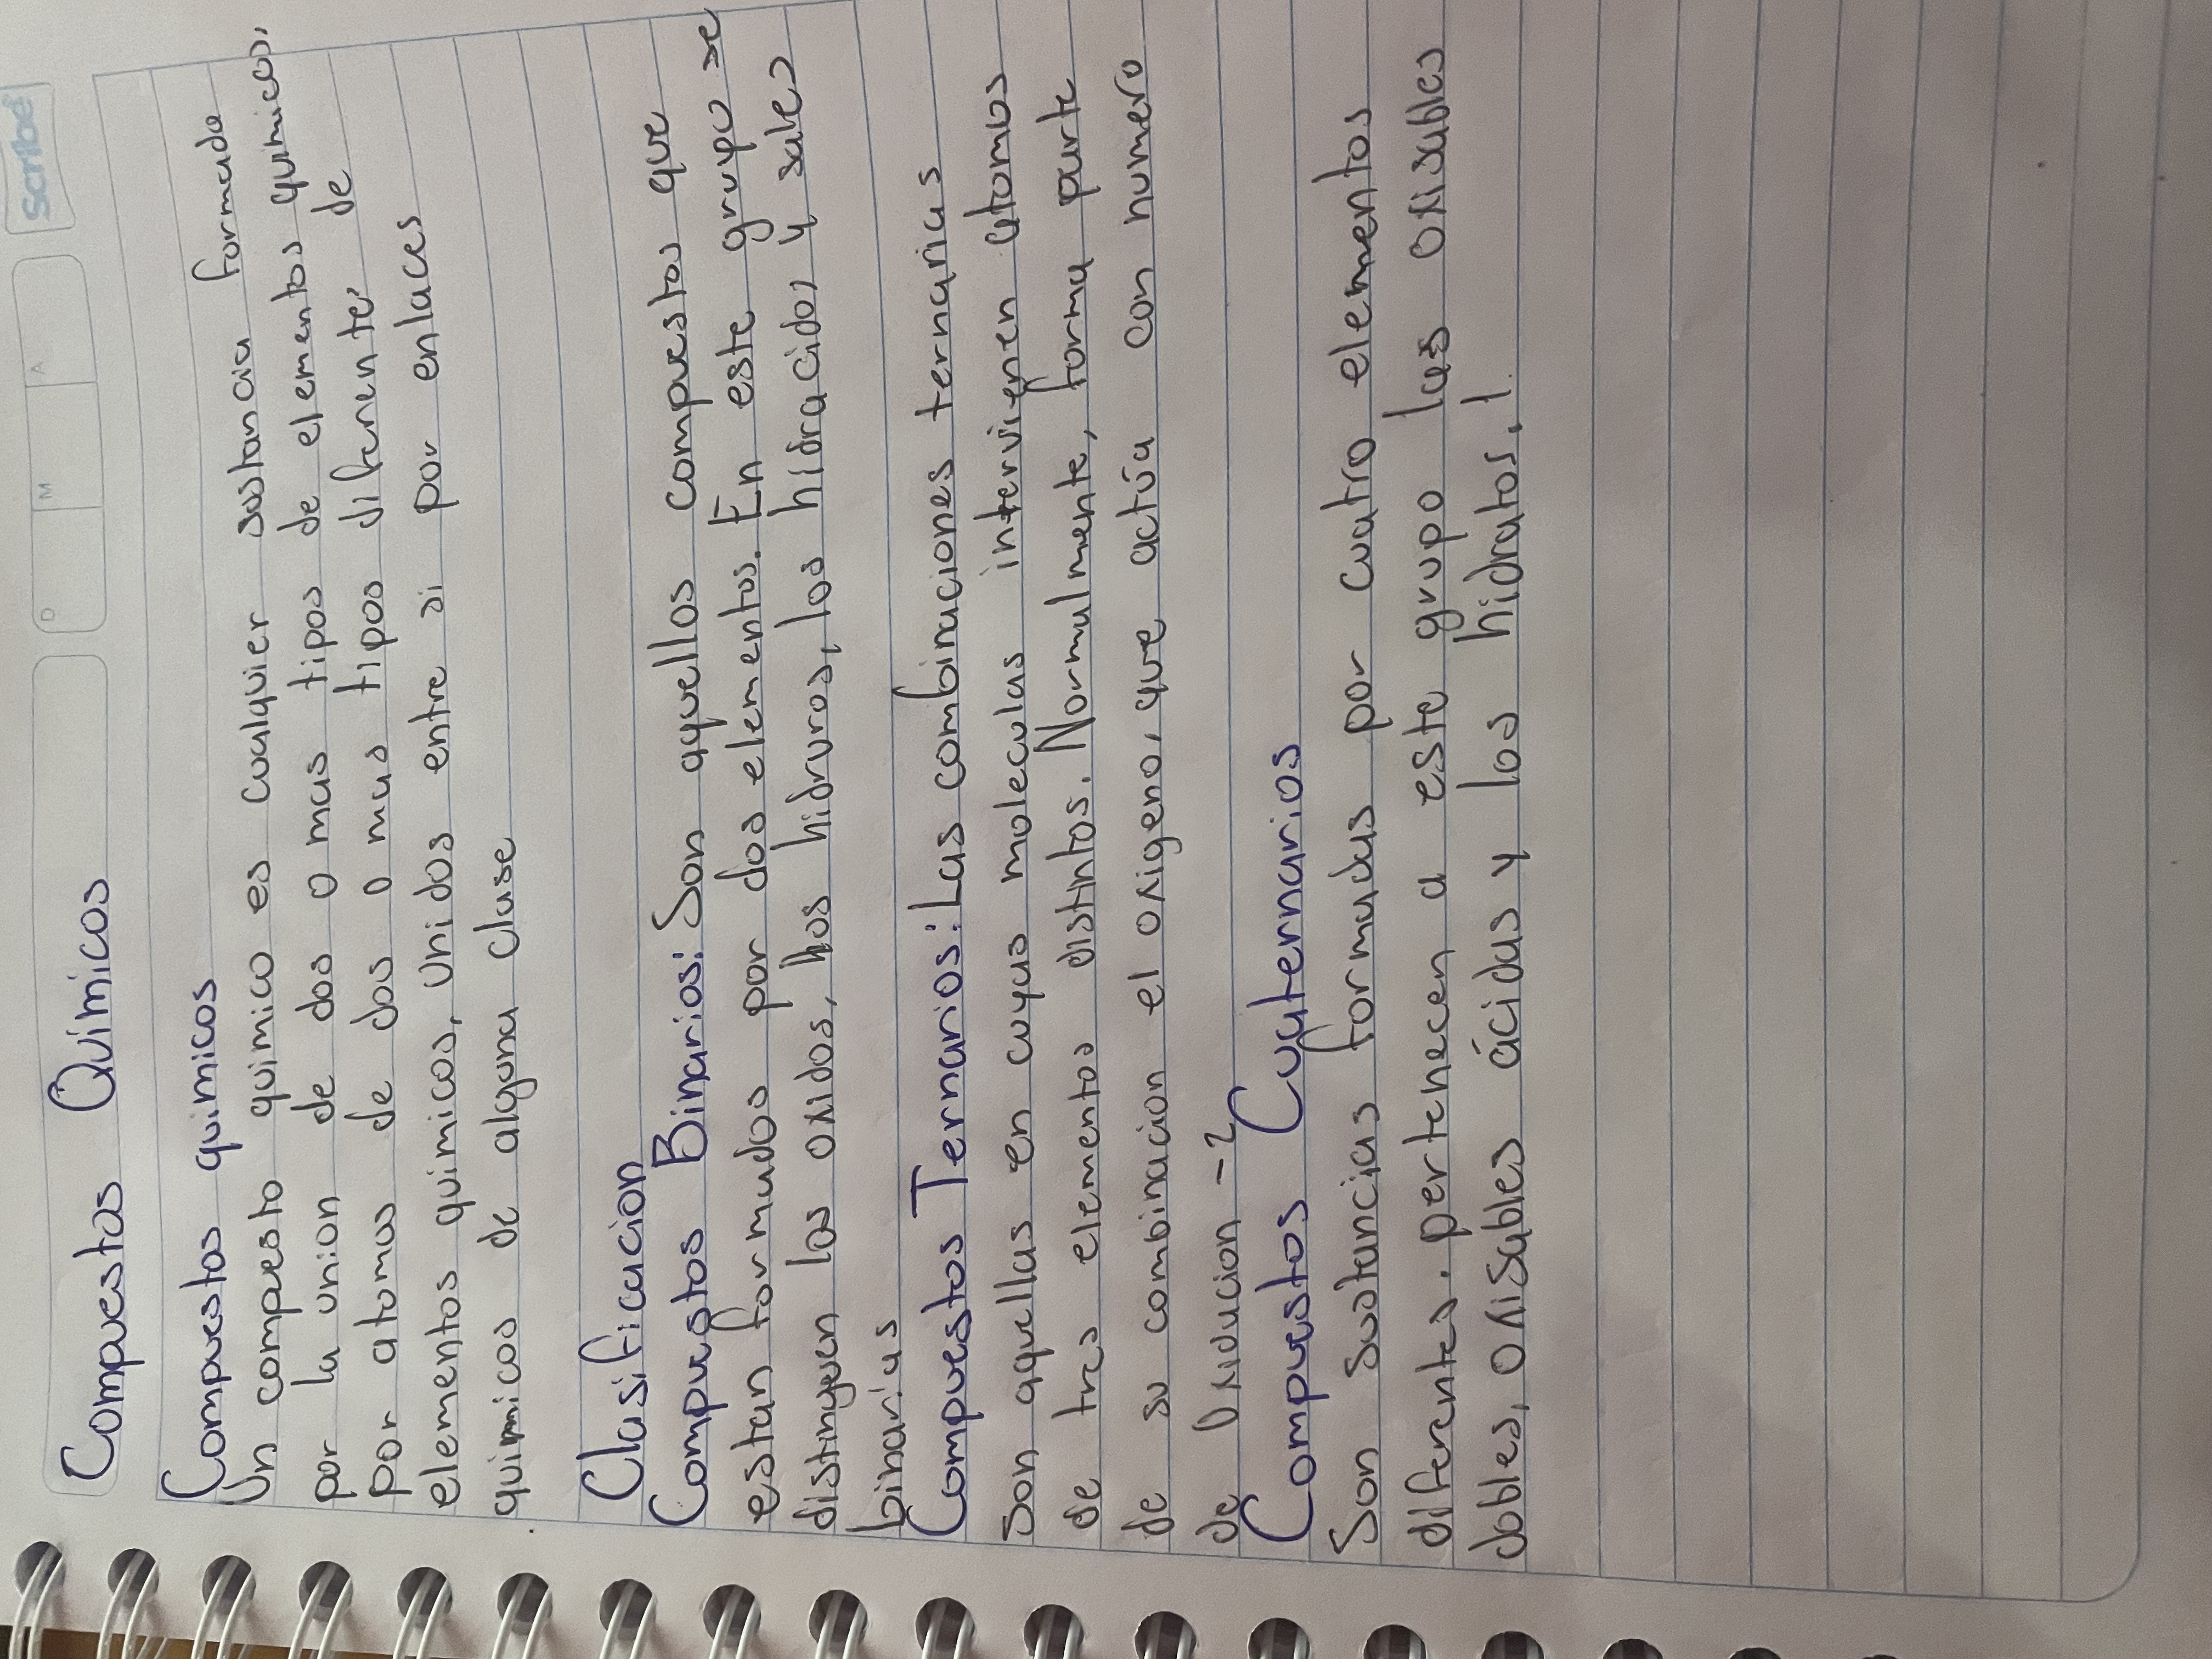 Scribe
D M A
Compuestos Quimicos
Compuestos quimicos
Un compuesto quimico es cualquier sustancia formada
por la union de dos o mas tipos de elementos quimicos,
por atomos de dos o mas tipos diferentes de
elementos quimicos, unidos entre si por enlaces
quimicos de alguna clase
Clasificacion
Compuestos Binarios: Son aquellos compuestos que
estan formados por dos elementos. En este grupo se
distinguen los oxidos, los hidruros, los hidracidos y sales
binarias
Compuestos Ternarios: Las combinaciones ternarias
son aquellas en cuyas moleculas intervienen atomos
de tres elementos distintos. Normalmente, forma parte
de su combinacion el oxigeno, que actúa con numero
de Oxidacion -2
Compuestos Cuaternarios
Son sustancias formadas por cuatro elementos
diferentes. pertenecen a este grupo las oxisables
dobles, oxisables ácidas y los hidratos.